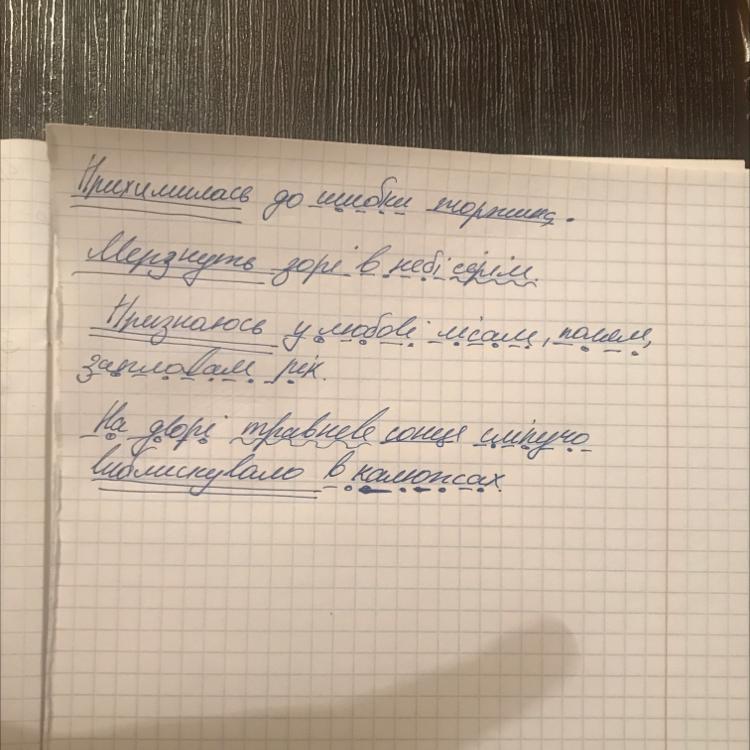 Прихилилась до шибки жоржина.
Мерзнуть зорі в небі сірім.
Признаюсь у любові лісам, полям,
заплавам рік.
На дворі травневе сонце сліпучо
виблискувало в калюжах.